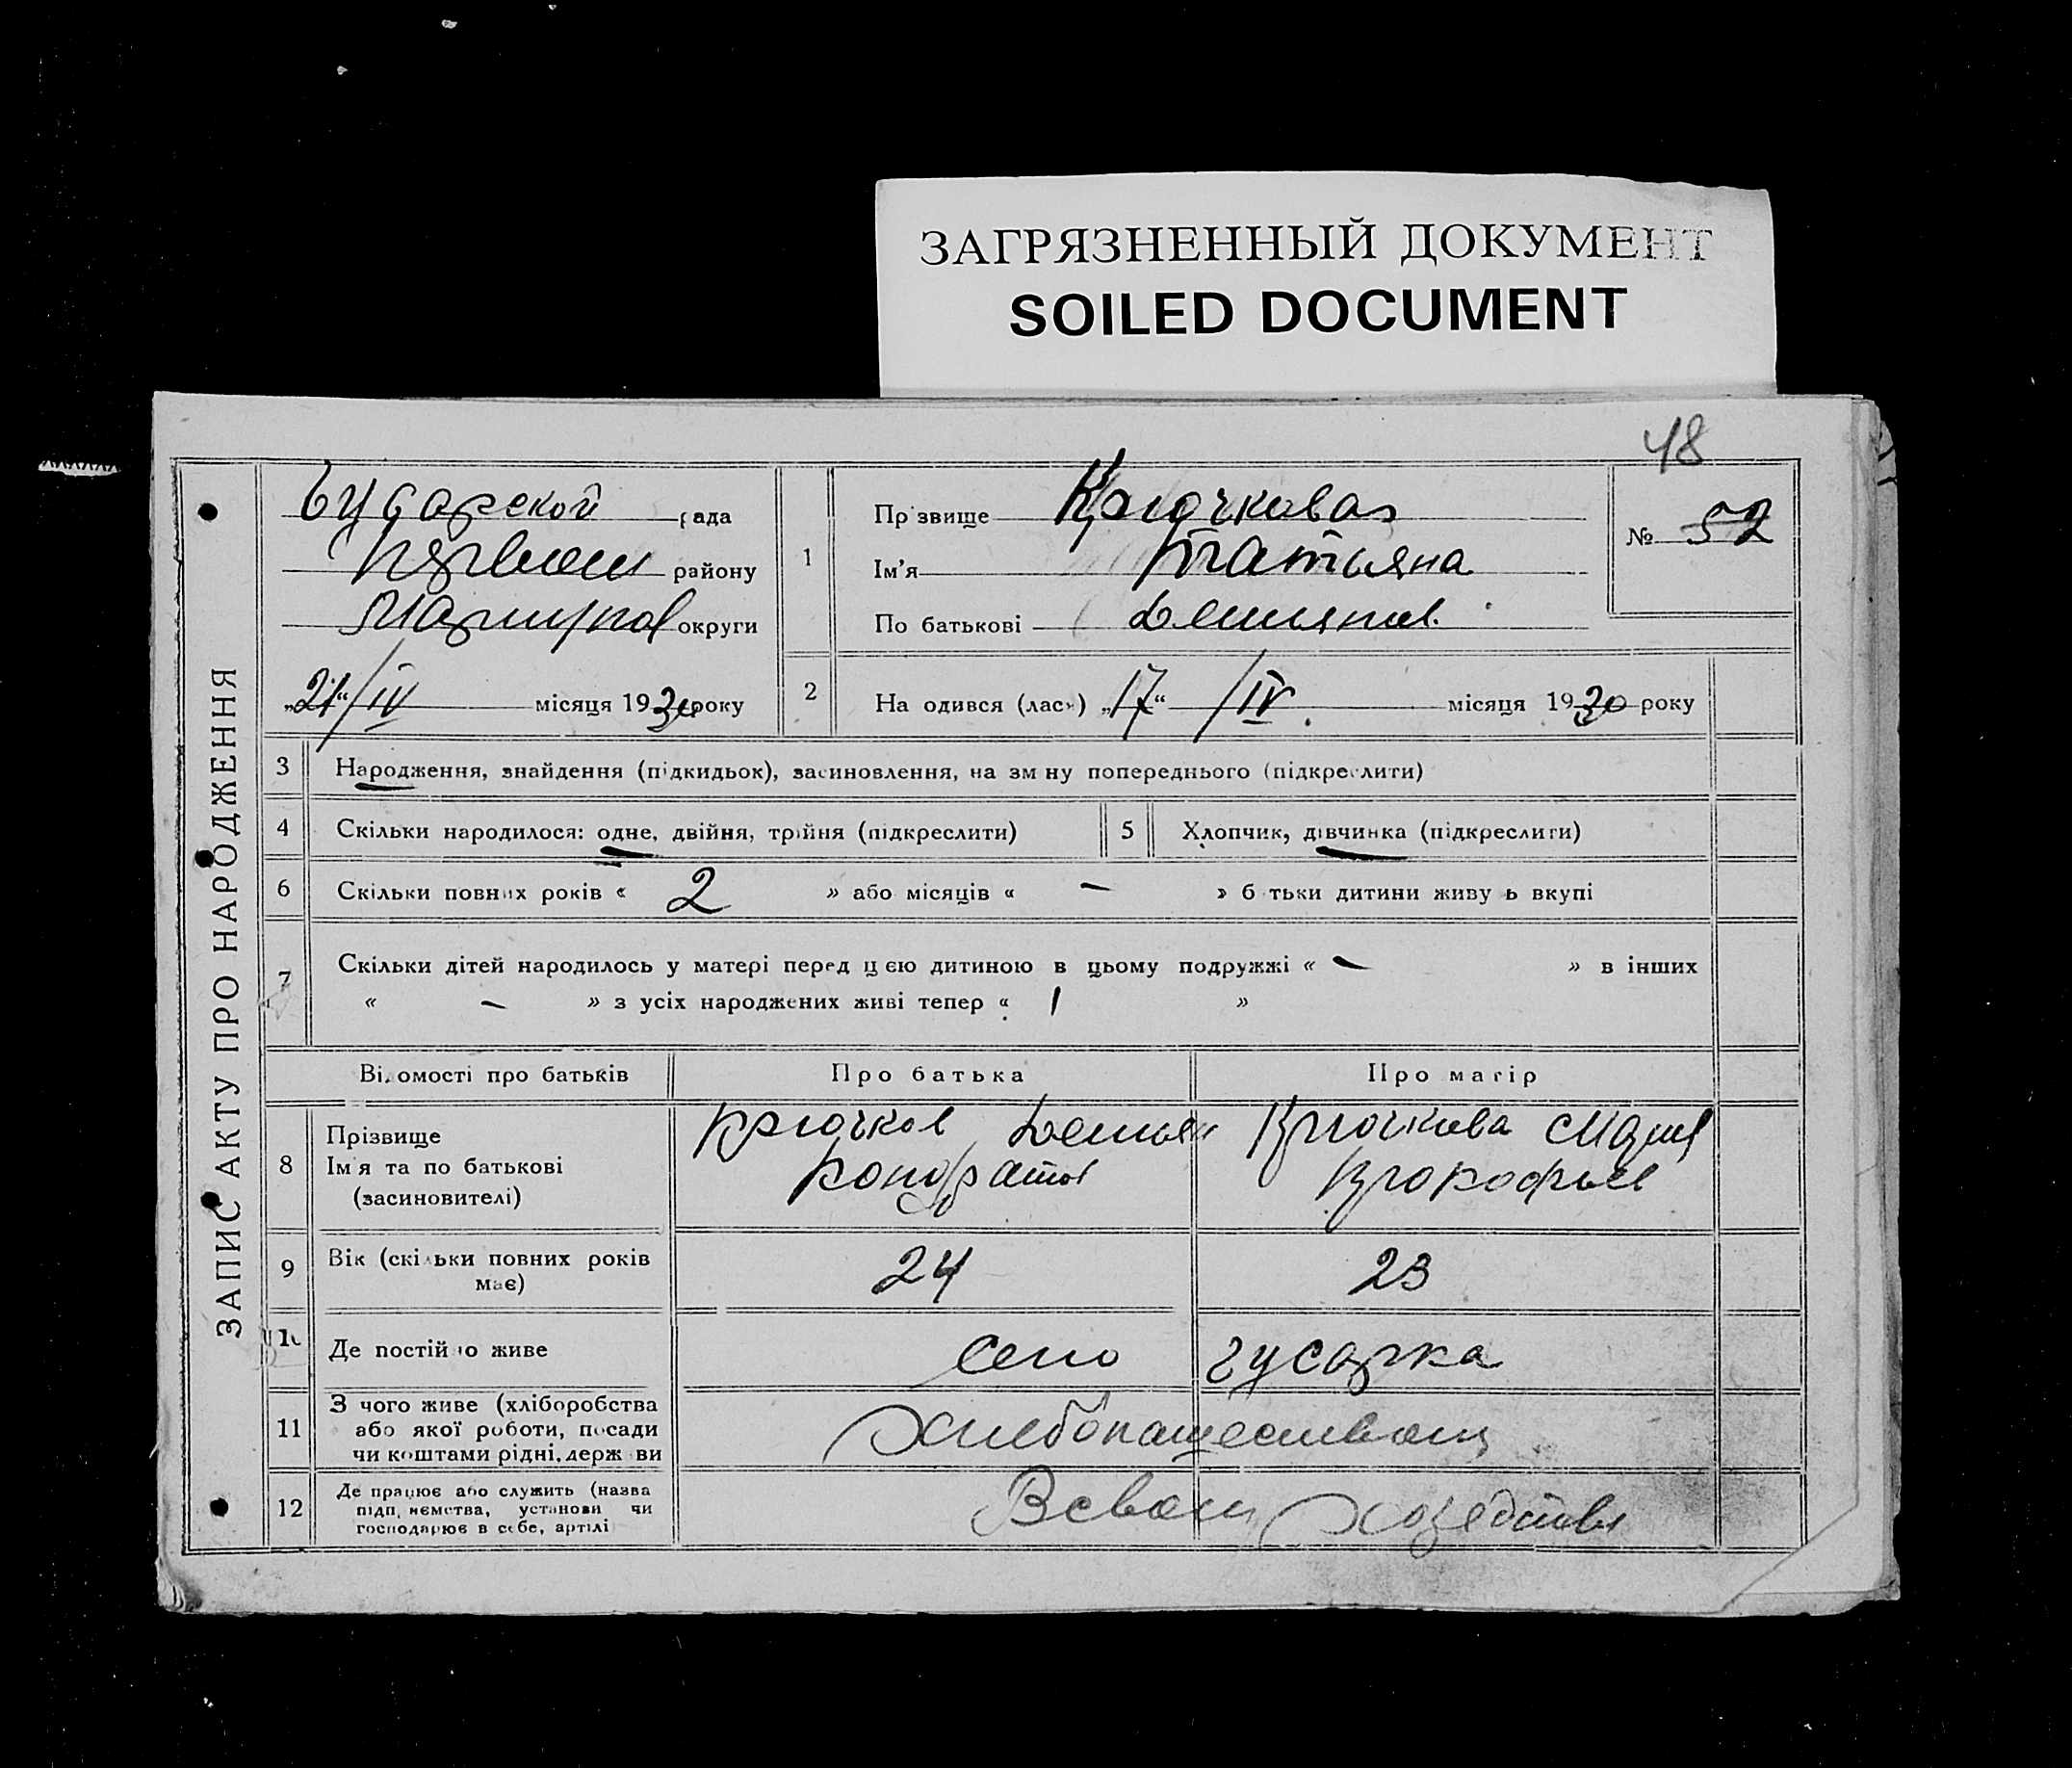 ЗАГРЯЗНЕННЫЙ ДОКУМЕНТ
SOILED DOCUMENT
48
ЗАПИС АКТУ ПРО НАРОДЖЕННЯ
рада
району
Мариупол округи
„21“/IV місяця 1930 року
1
Пр звище Крючкова
Ім'я Татьяна
По батькові Демьянов.
№ 52
2 На одився (лась) „17“ /IV. місяця 1930 року
3 Народження, знайдення (підкидьок), засиновлення, на зм ну попереднього (підкреслити)
4 Скільки народилося: одне, двійня, трійня (підкреслити) 5 Хлопчик, дівчинка (підкреслити)
6 Скільки повних років « 2 » або місяців « – » б тьки дитини живу ь вкупі
7 Скільки дітей народилось у матері перед цією дитиною в цьому подружжі « – » в інших
« – » з усіх народжених живі тепер « 1 »
Відомості про батьків Про батька Про матір
8 Прізвище
Ім'я та по батькові
(засиновителі)
Крючков Демьян
Кондратов
Крючкова Мария
Прокофьев
9 Вік (скільки повних років
має) 24 23
10 Де постійно живе село Гусарка
11 З чого живе (хліборобства
або якої роботи, посади
чи коштами рідні, держ ви
Хлебопашеством
12 Де працює або служить (назва
підп иємства, установи чи
господарює в себе, артілі
В своем